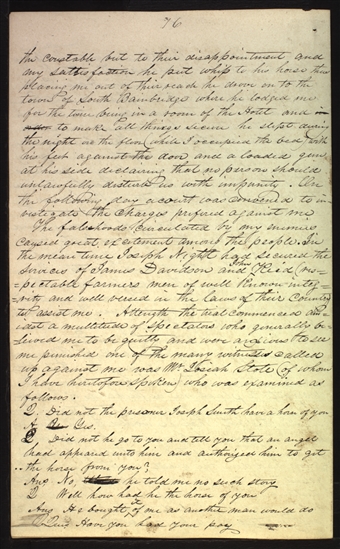 76
the constable but to their disappointment and
my sattisfaction he put whip to his horse thus
placing me out of their reach he drove on to the
town of South Bainbridge where he lodged me
for the time being in a room of the Hotel and in
to make all things secure he slept during
the night on the floor (while I occupied the bed) with
his feet against the door and a loaded gun
at his side declaring that no persons should
unlawfully disturb us with impunity. On
the following day a court was convened to in-
vestigate the Charges prefered against me
The falsehoods circulated by my enimies
caused great excitement among the people. In
the mean time Joseph Night had secured the
services of James Davidson and Reid (res-
pectable farmers men of well known integ-
rity and well versed in the laws of their Country
to assist me. Although the trial commenced am-
idst a multitude of spectators who generally be-
lieved me to be guilty and were anxious to see
me punished one of the many witnesses called
up against me was Mr. Josiah Stole (of whom
I have heretofore spoken) who was examined as
follows.
Q. Did not the prisoner Joseph Smith have a horse of you
A. Yes.
Q. Did not he go to you and tell you that an angel
had appeard unto him and authorised him to get
the horse from you?
Ans No, he told me no such story
Q Well how had he the horse of you
Ans He bought of me as another man would do
Ques Have you had your pay